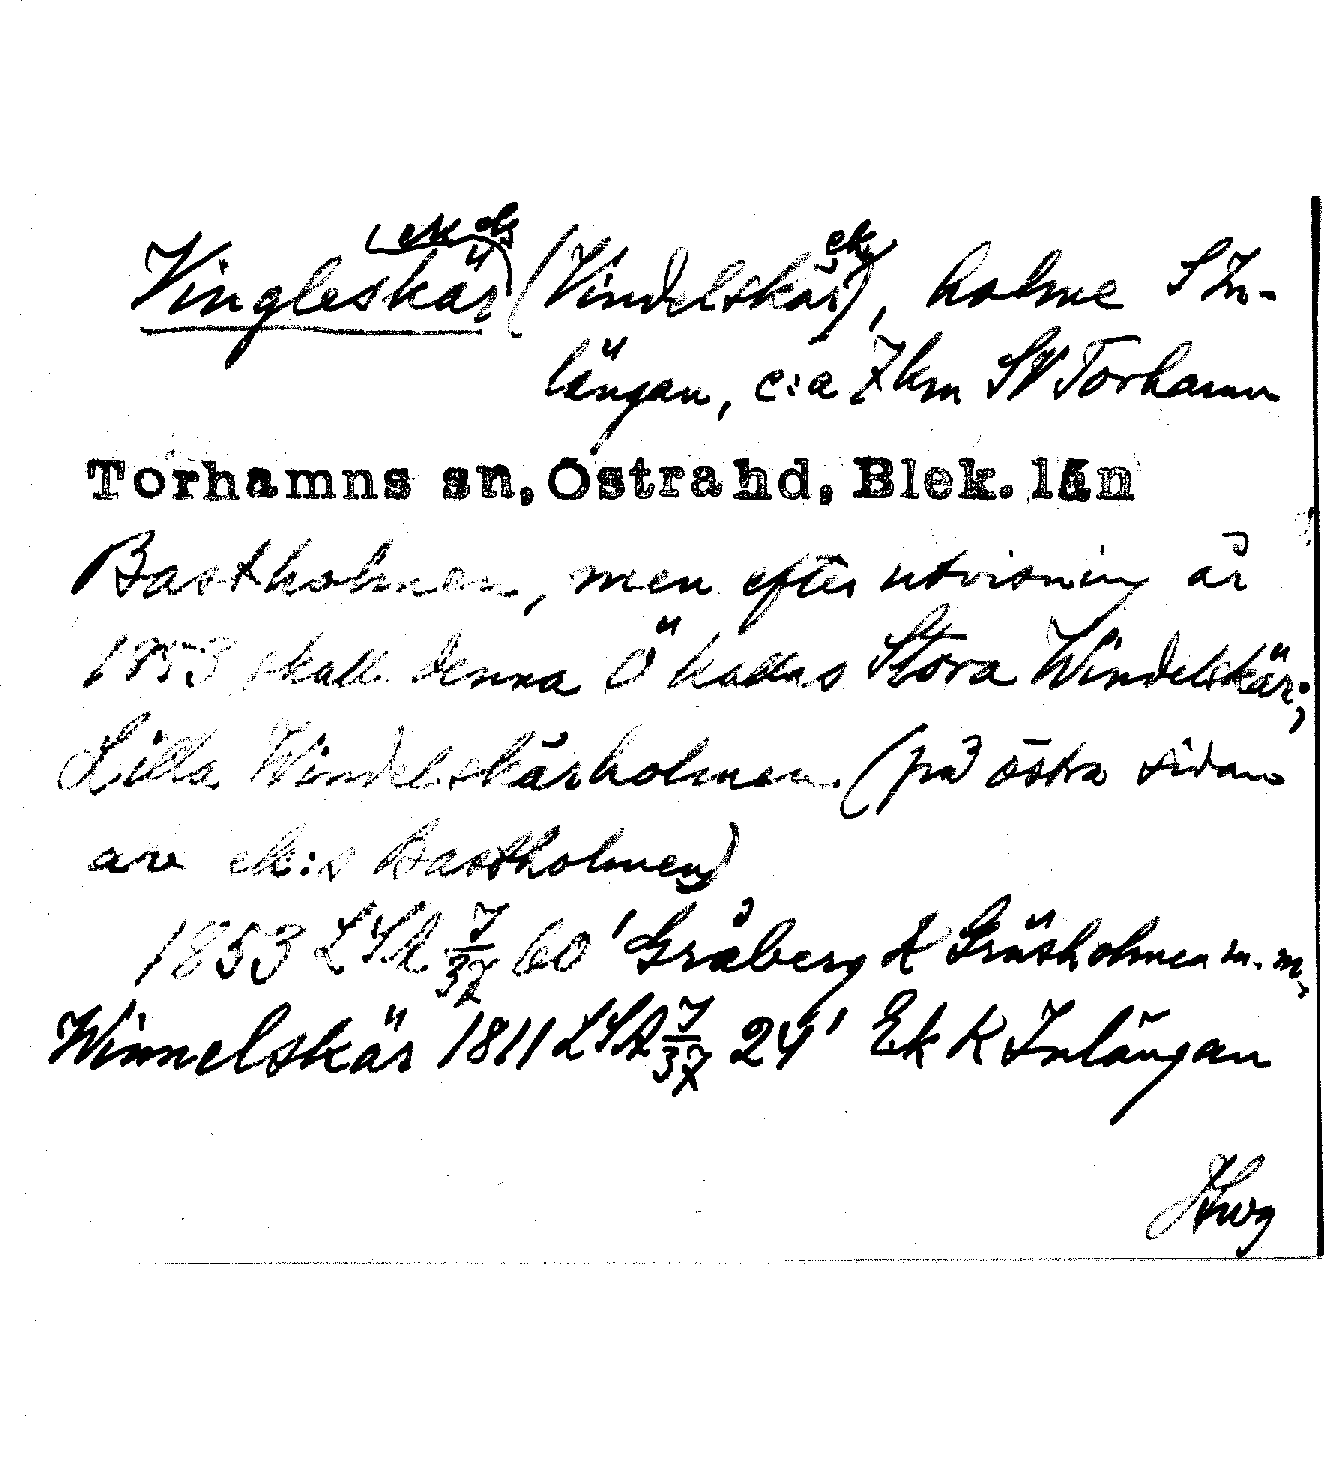 Vingleskär (Vindelskär ek), holme S In-
längan, c:a 7 km SV Torhamn
Torhamns sn, Östra hd, Blek. län
Bastholmen, men efter utvisning år
1853 skall denna Ö kallas Stora Windelskär;
Lilla Windelskärholmen (på östra sidan
av ek:s Bastholmen)
1853 LSA 7/37 60' Gråberg K Gräsholmen m.m,
Winnelskär 1811 LSA 7/37 24' Ek K Inlängan